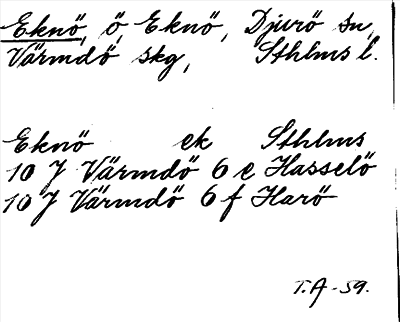 Eknö, ö, Eknö, Djurö sn,
Värmdö skg, Sthlms l.
Eknö ek Sthlms
10 J Värmdö 6 e Hasselö
10 J Värmdö 6 f Harö
T.A -59.